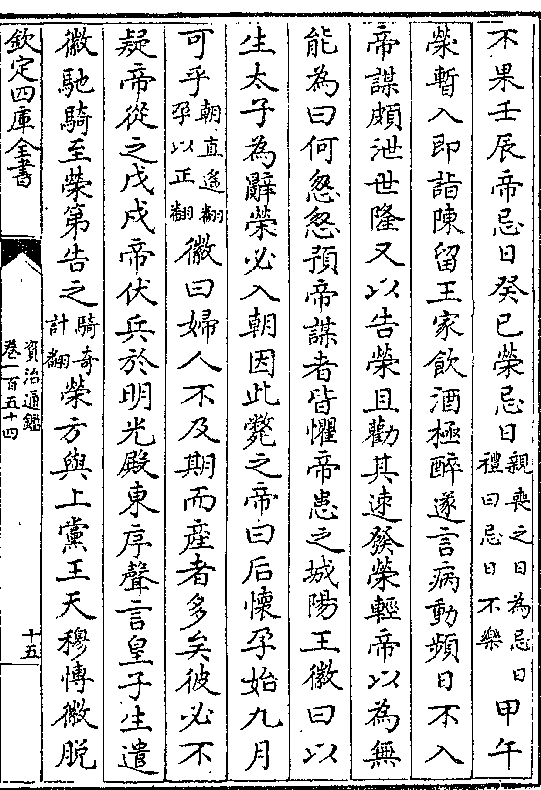 不果壬辰帝忌日癸巳榮忌日親喪之日為忌日禮曰忌日不樂甲午
榮暫入即詣陳留王家飲酒極醉遂言病動頻日不入
帝謀頗泄世隆又以告榮且勸其速發榮輕帝以為無
能為曰何怱怱預帝謀者皆懼帝患之城陽王徽曰以
生太子為辭榮必入朝因此斃之帝曰后懷孕始九月
可乎朝直遙翻孕以正翻徽曰婦人不及期而産者多矣彼必不
疑帝從之戊戌帝伏兵於明光殿東序聲言皇子生遣
徽馳騎至榮第告之騎奇計翻榮方與上黨王天穆愽徽脱
欽定四庫全書
資治通鑑
卷一百五十四
十五